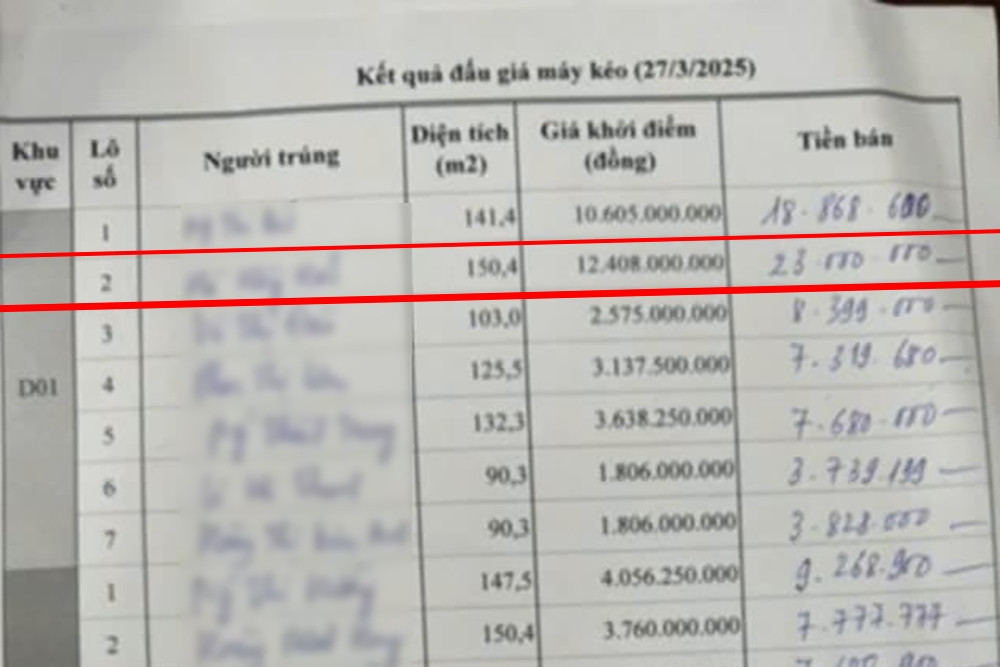 Kết quả đấu giá máy kéo (27/3/2025)
Khu vực Lô số Người trúng Diện tích (m2) Giá khởi điểm (đồng) Tiền bán
1 141,4 10.605.000.000 18.868.600
2 150,4 12.408.000.000 23.000.000
3 103,0 2.575.000.000 8.399.000
D01 4 125,5 3.137.500.000 7.319.680
5 132,3 3.638.250.000 7.680.000
6 90,3 1.806.000.000 3.739.199
7 90,3 1.806.000.000 3.828.000
1 147,5 4.056.250.000 9.268.900
2 150,4 3.760.000.000 7.777.777